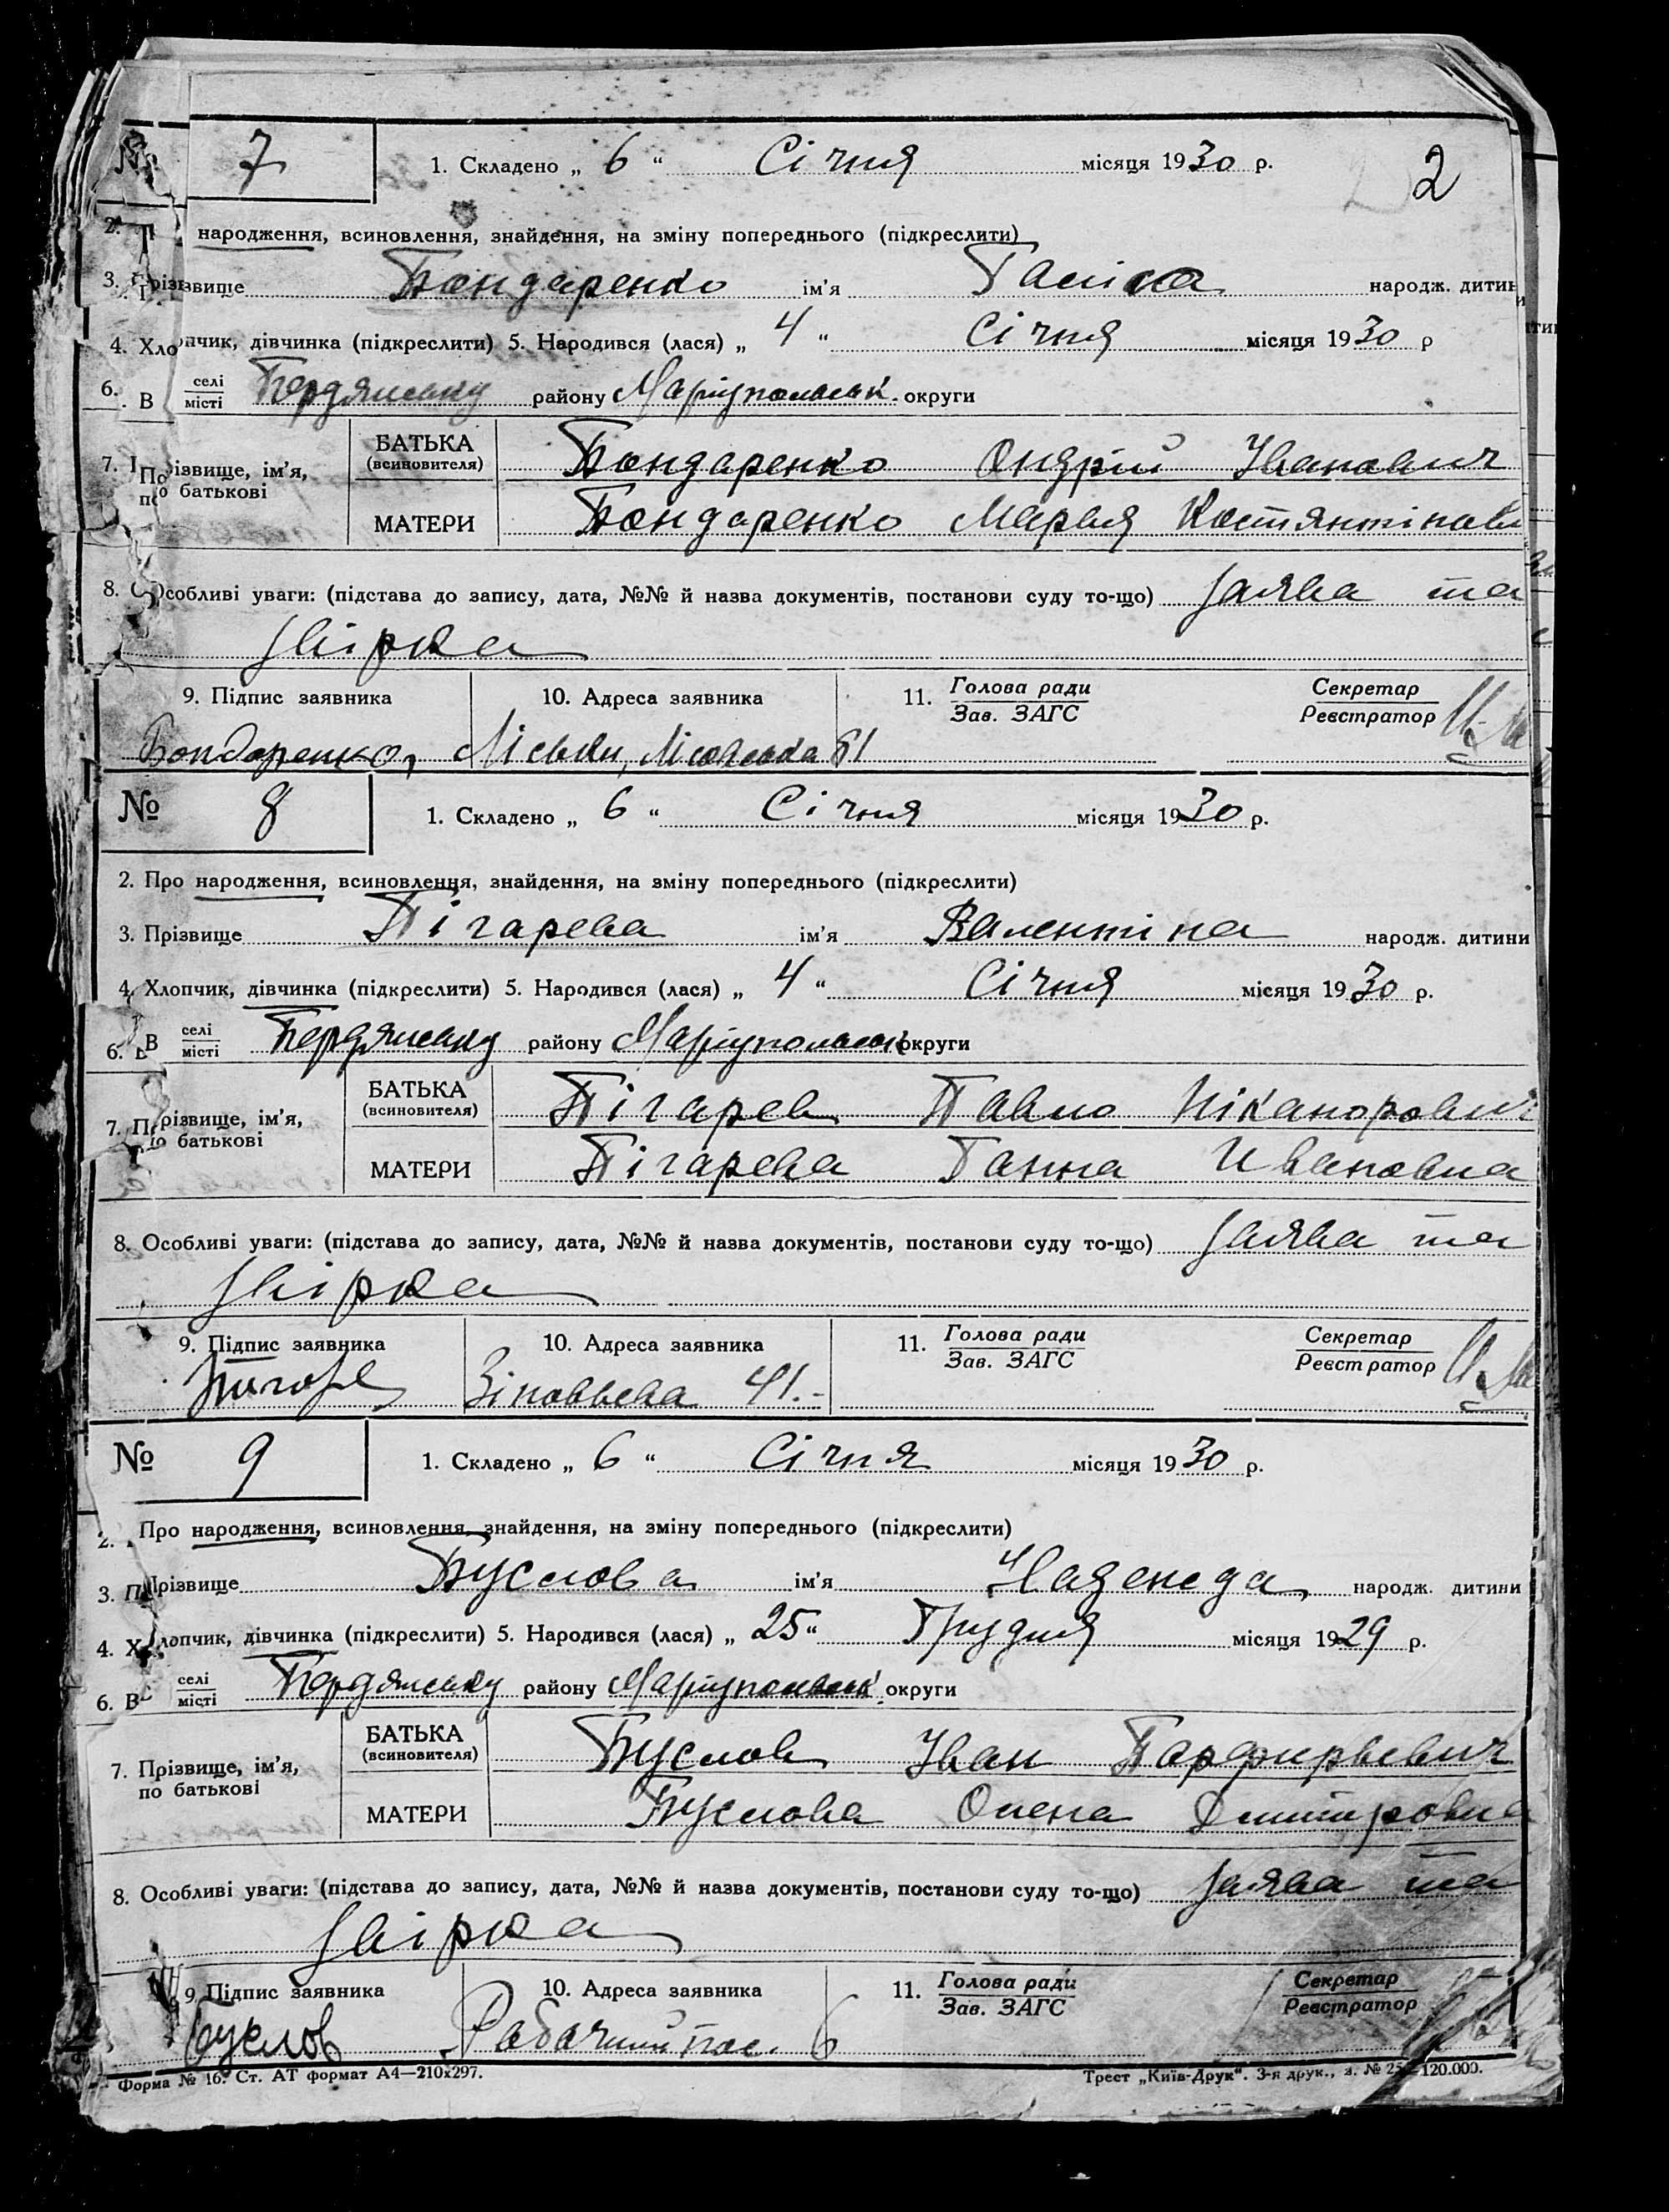 № 7 1. Складено „ 6 “ Січня місяця 1930 р. 2
2. народження, всиновлення, знайдення, на зміну попереднього (підкреслити)
3. Прізвище Бондаренко ім'я Галіна народж. дитин
4. Хлопчик, дівчинка (підкреслити) 5. Народився (лася) „ 4 “ Січня місяця 1930 р
6. В селі місті Бердянську району Маріупольськ. округи
7. Прізвище, ім'я, по батькові БАТЬКА (всиновителя) Бондаренко Ондрій Іванович
МАТЕРИ Бондаренко Марья Костянтіновн
8. Особливі уваги: (підстава до запису, дата, №№ й назва документів, постанови суду то-що) Заява та
звірка
9. Підпис заявника 10. Адреса заявника 11. Голова ради Зав. ЗАГС Секретар Реєстратор
Бондаренко, 81
№ 8 1. Складено „ 6 “ Січня місяця 1930 р.
2. Про народження, всиновлення, знайдення, на зміну попереднього (підкреслити)
3. Прізвище Пігарева ім'я Валентіна народж. дитини
4. Хлопчик, дівчинка (підкреслити) 5. Народився (лася) „ 4 “ Січня місяця 1930 р.
6. В селі місті Бердянську району Маріупольськ округи
7. Прізвище, ім'я, по батькові БАТЬКА (всиновителя) Пігарев Павло Ніканорович
МАТЕРИ Пігарева Ганна Ивановна
8. Особливі уваги: (підстава до запису, дата, №№ й назва документів, постанови суду то-що) Заява та
звірка
9. Підпис заявника 10. Адреса заявника 11. Голова ради Зав. ЗАГС Секретар Реєстратор
Зіновьева 41.-
№ 9 1. Складено „ 6 “ Січня місяця 1930 р.
2. Про народження, всиновлення, знайдення, на зміну попереднього (підкреслити)
3. Прізвище Буслова ім'я Надежда народж. дитини
4. Хлопчик, дівчинка (підкреслити) 5. Народився (лася) „ 25 “ Грудня місяця 1929 р.
6. В селі місті Бердянську району Маріупольськ. округи
7. Прізвище, ім'я, по батькові БАТЬКА (всиновителя) Буслов Іван Парфирьевич
МАТЕРИ Буслова Олена Дмитровна
8. Особливі уваги: (підстава до запису, дата, №№ й назва документів, постанови суду то-що) Заява та
звірка
9 Підпис заявника 10. Адреса заявника 11. Голова ради Зав. ЗАГС Секретар Реєстратор
Буслов Рабочий пос. 6
Форма № 16. Ст. АТ формат А4—210x297. Трест „Київ-Друк“. 3-я друк., з. № 25 —120.000.